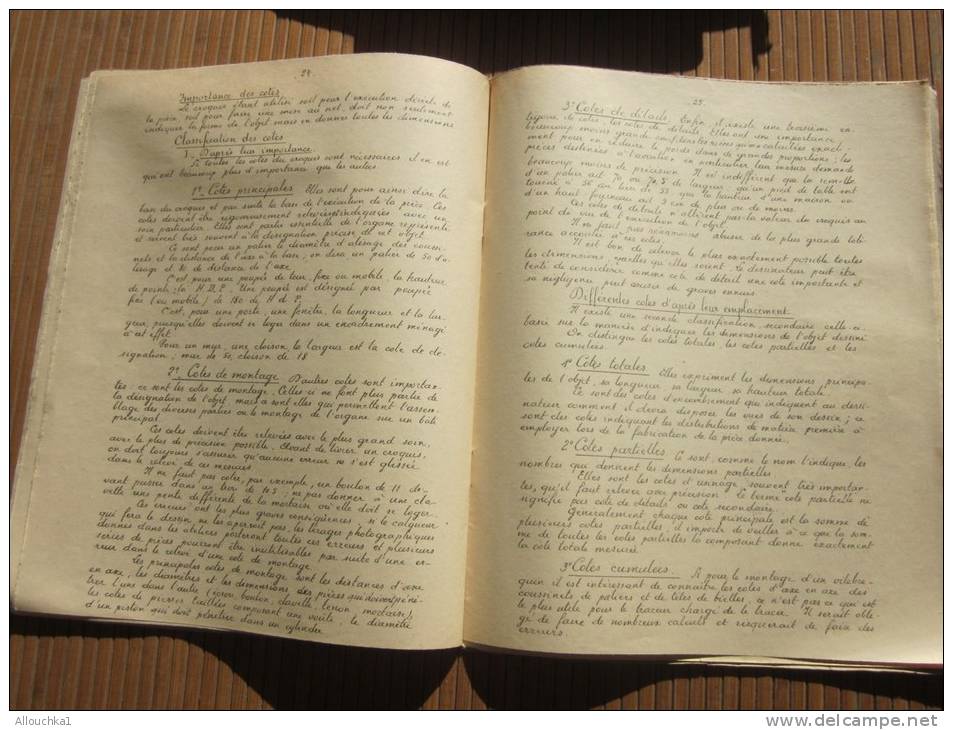 24.
Importance des cotes
Le croquis étant utilisé soit pour l'exécution directe de
la pièce, soit pour faire une mise au net, doit non seulement
indiquer la forme de l'objet mais en donner toutes les dimensions
Classification des cotes
1. D'après leur importance.
Si toutes les cotes du croquis sont nécessaires il en est
qui ont beaucoup plus d'importance que les autres.
1° Cotes principales Elles sont pour ainsi dire la
base du croquis et par suite la base de l'exécution de la pièce. Ces
cotes doivent être rigoureusement relevées indiquées avec un
soin particulier. Elles sont partie essentielle de l'organe représenté
et servent très souvent à la désignation précise de cet objet.
Ce sont pour un palier le diamètre d'alésage des coussi-
nets et la distance de l'axe à la base; on dira un palier de 50 d'a-
lésage et 80 de distance de l'axe.
C'est pour une poupée de tour, fixe ou mobile, la hauteur
de pointe: la H.D.P. Une poupée est désignée par poupée
fixe (ou mobile) de 180 de H.d.P.
C'est, pour une porte, une fenêtre, la longueur et la lar-
geur, puisqu'elles doivent se loger dans un encadrement ménagé
à cet effet.
Pour un mur, une cloison, la largeur est la cote de dé-
signation; mur de 50, cloison de 18
2° Cotes de montage D'autres cotes sont importan-
tes: ce sont les cotes de montage. Celles ci ne font plus partie de
la désignation de l'objet, mais ce sont elles qui permettent l'assem-
blage des diverses parties ou le montage de l'organe sur un bâti
principal
Ces cotes doivent être relevées avec le plus grand soin,
avec le plus de précision possible. Avant de livrer un croquis,
on doit toujours s'assurer qu'aucune erreur ne s'est glissée
dans le relever de ces mesures.
Il ne faut pas coter, par exemple, un boulon de 11 de-
vant passer dans un trou de 10.5; ne pas donner à une cla-
vette une pente différente de la mortaise où elle doit se loger.
Ces erreurs ont les plus graves conséquences; si le calqueur
qui fera le dessin ne les aperçoit pas, les tirages photographiques
donnés dans les ateliers porteront toutes ces erreurs et plusieurs
séries de pièces pourront être inutilisables par suite d'une er-
reur dans le relevé d'une cote de montage.
Les principales cotes de montage sont les distances d'axe
en axe, les diamètres et les dimensions des pièces qui doivent péné-
trer l'une dans l'autre (écrou, boulon, clavette, tenon, mortaise),
les cotes de pierres taillées composant une voûte, le diamètre
d'un piston qui doit pénétrer dans un cylindre
25.
3° Cotes de détails Enfin il existe une troisième ca-
tégorie de cotes, les cotes de détails. Elles ont une importance
beaucoup moins grande
ment pour en réduire le poids dans de grandes proportions; les
pièces destinées à l'aviation en particulier, leur mesure demande
beaucoup moins de précision Il est indifférent que la semelle
d'un palier ait 70 ou 70,5 de largeur, qu'un pied de table ait
tourné à 56 au lieu de 55 que la hauteur d'une maison ou
d'un haut fourneau ait 3 cm de plus ou de moins.
Ces cotes de détails n'altèrent pas la valeur du croquis au
point de vue de l'exécution de l'objet.
Il ne faut pas néanmoins abuser de la plus grande tolé-
rance accordée à ces cotes.
Il est bon de relever le plus exactement possible toutes
les dimensions, quelles qu'elles soient, le dessinateur peut être
tenté de considérer comme cote de détail une cote importante et
sa négligence peut causer de graves ennuis.
Différentes cotes d'après leur emplacement.
Il existe une seconde classification secondaire celle-ci
basée sur la manière d'indiquer les dimensions de l'objet dessiné
On distingue les cotes totales, les cotes partielles et les
cotes cumulées.
1° Cotes totales. Elles expriment les dimensions principa-
les de l'objet, sa longueur sa largeur sa hauteur totale.
Ce sont des cotes d'encombrement qui indiquent au dessi-
nateur comment il devra disposer les vues de son dessin; ce
sont des cotes indiquant les distributions de matière première à
employer lors de la fabrication de la pièce donnée.
2° Cotes partielles. Ce sont, comme le nom l'indique, les
nombres qui donnent les dimensions partielles
Elles sont les cotes d'usinage, souvent très importan-
tes, qu'il faut relever avec précision. Le terme cote partielle ne
signifie pas cote de détails ou cote secondaire.
Généralement chaque cote principale est la somme de
plusieurs cotes partielles, il importe de veiller à ce que la som-
me de toutes les cotes partielles la composant donne exactement
la cote totale mesurée.
3° Cotes cumulées. Si pour le montage d'un vilebre-
quin il est intéressant de connaître les cotes d'axe en axe des
coussinets de paliers et de têtes de bielles, ce n'est pas ce qui est
le plus utile pour le traceur chargé de la tracer. Il serait obli-
gé de faire de nombreux calculs et risquerait de faire des
erreurs.
Allouchka1
www.delcampe.net